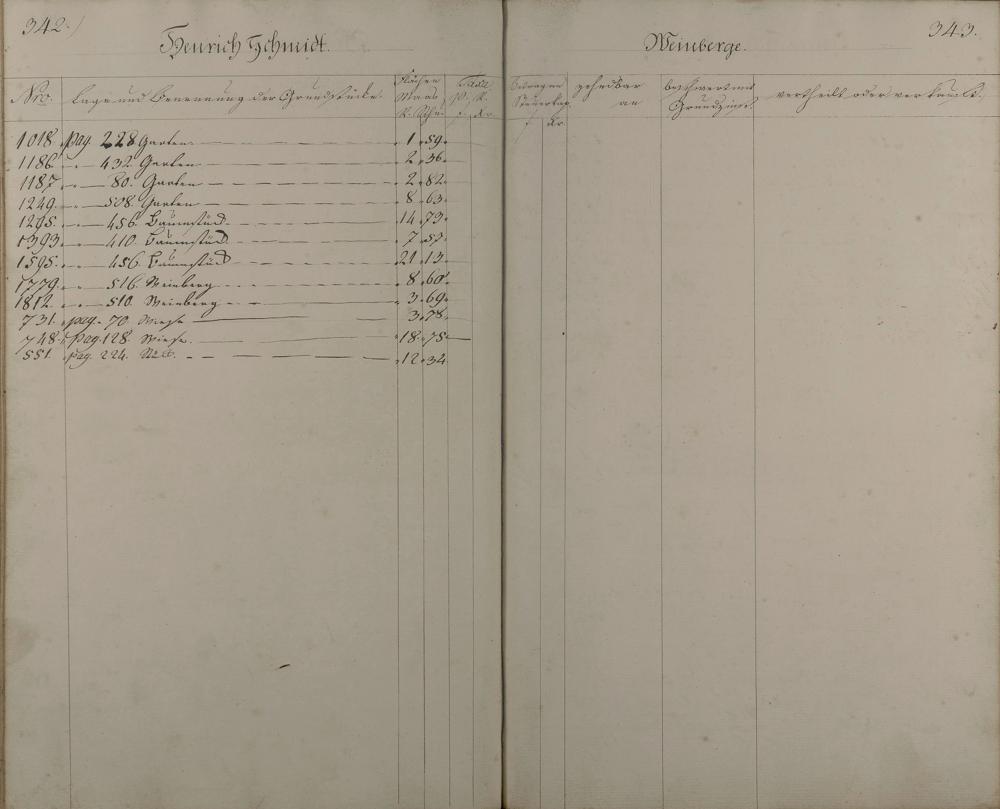 342.
Henrich Schmidt.
Nro. Lage und Benennung der Grundstücke Flächen Maas R. Schu. Taxe p. R. f. Kr.
1018. pag. 228 Garten 1. 59.
1186. " — 432. Garten 2. 36.
1187. " — 80. Garten 2. 82.
1249. " — 508. Garten 8. 63.
1295. " — 456. Baumstück 14. 73.
1393. " — 410. Baumstück 7. 57.
1595. " — 456. Baumstück 21. 13.
1779. " — 516. Weinberg 8. 60.
1812. " — 510. Weinberg 3. 69.
731. pag. 70. Wiese 3. 78.
748. pag. 128. Wiese 18. 75.
551. pag. 224. 12. 34.
343.
Weinberge.
Betrag an Steuerkap. f. Kr. zehndbar an beschwert mit Grundzinßen vertheilt oder verkauft.